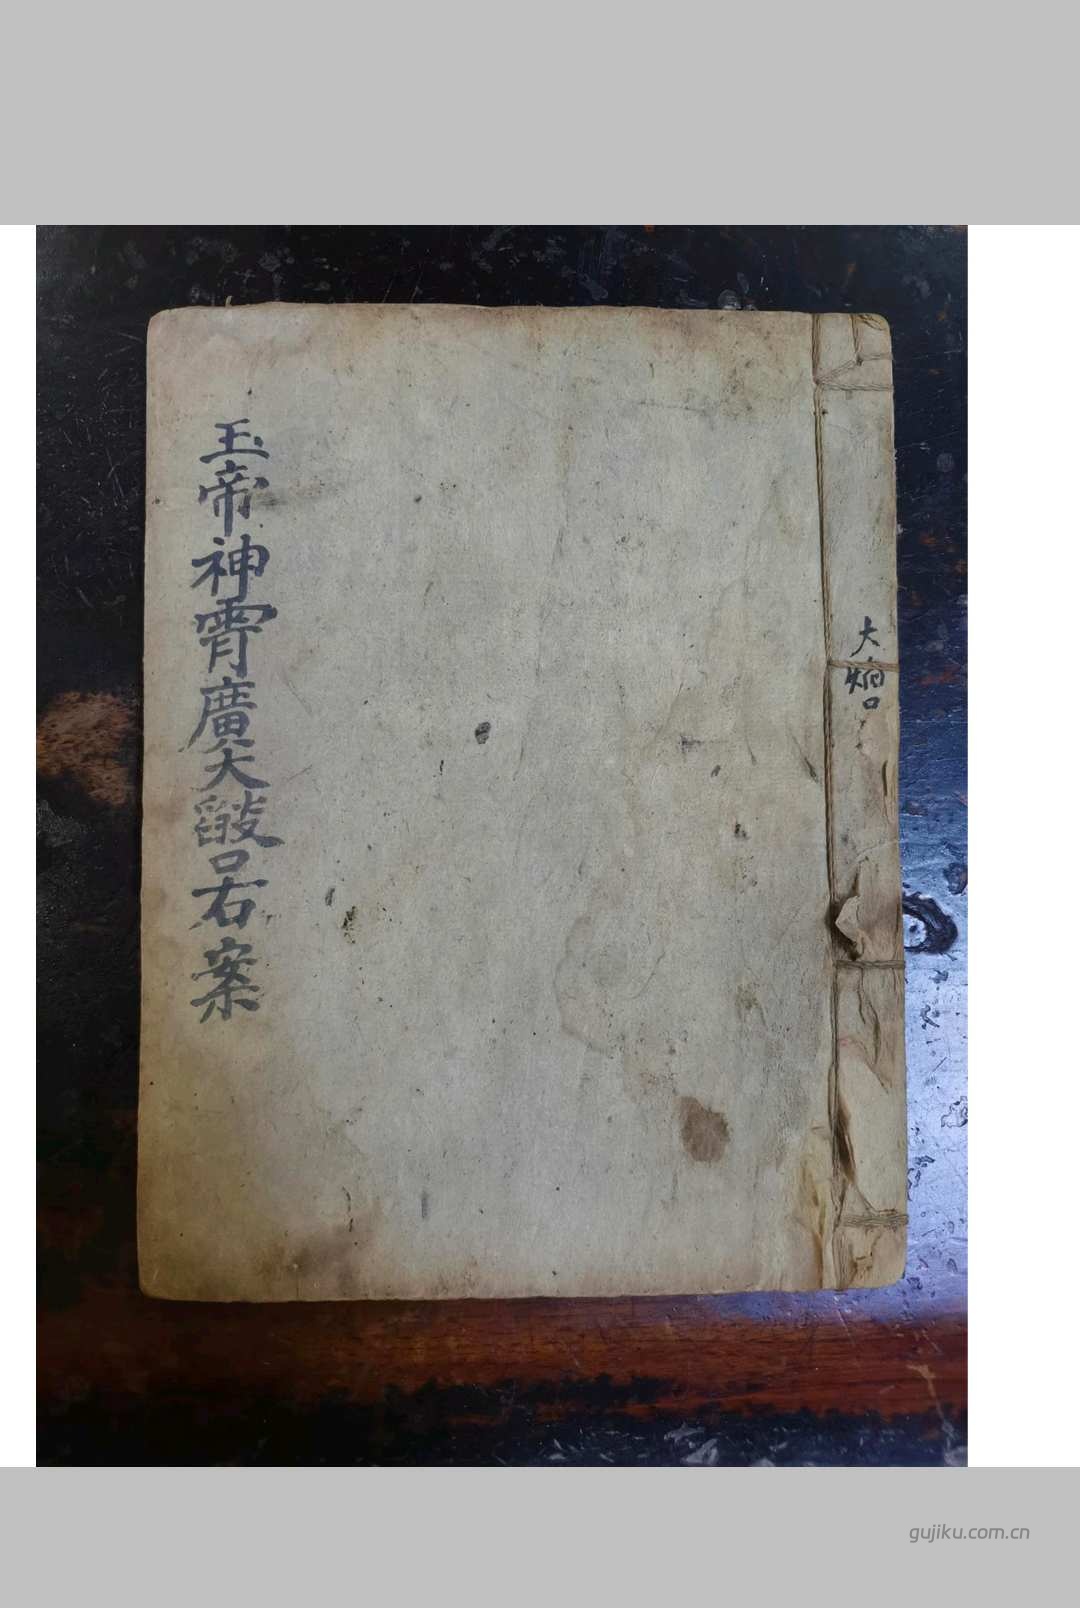 大焰口
玉帝神霄廣大口右案
gujiku.com.cn